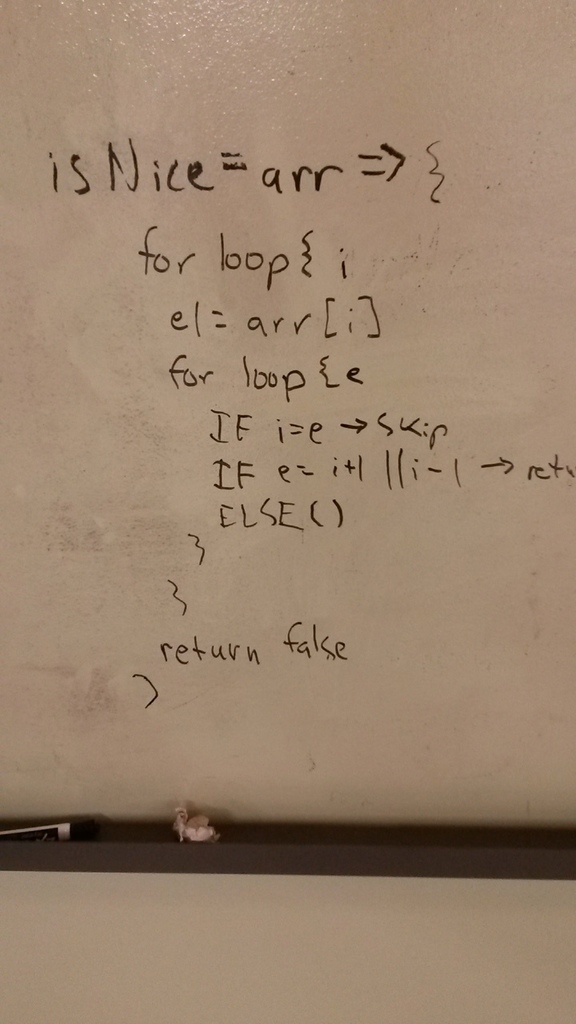 isNice = arr => {
for loop { i
el = arr[i]
for loop { e
IF i=e → skip
IF e= i+1 || i-1 →
ELSE()
}
}
return false
}